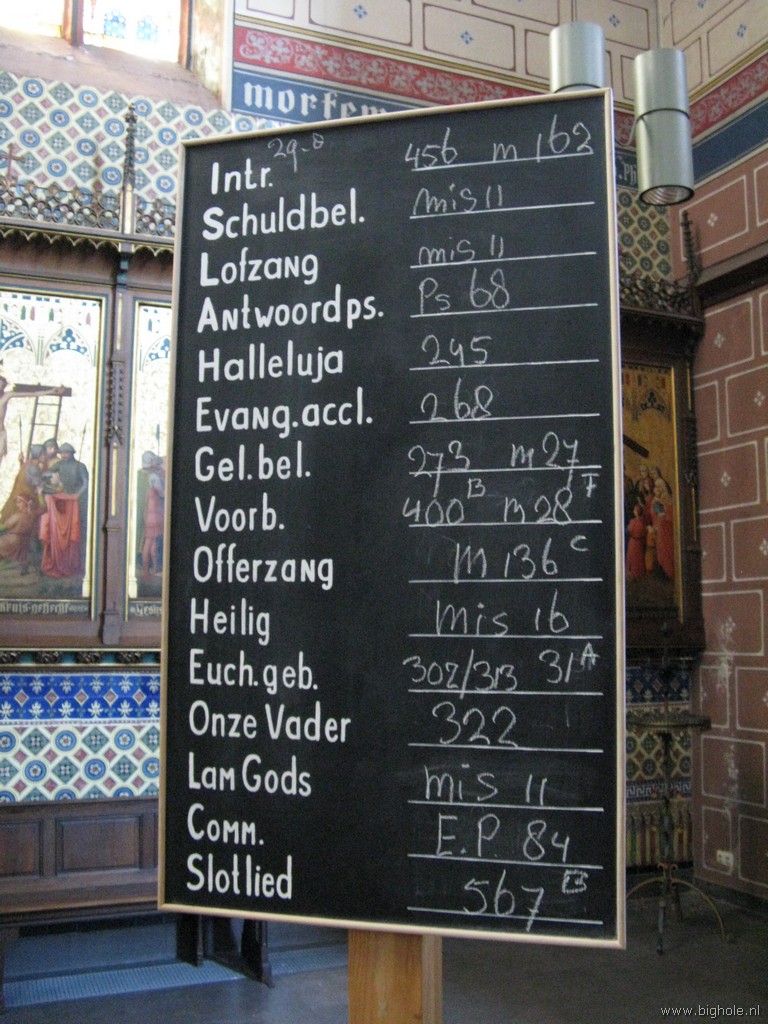 mortem
29-8
Intr. 456 m 162
Schuldbel. mis 11
Lofzang mis 11
Antwoordps. Ps 68
Halleluja 245
Evang.accl. 268
Gel.bel. 273 m 27
Voorb. 400 B m 28 F
Offerzang M 136 C
Heilig Mis 16
Euch.geb. 302/313 31 A
Onze Vader 322
Lam Gods mis 11
Comm. E.P. 84
Slotlied 567 B
www.bighole.nl